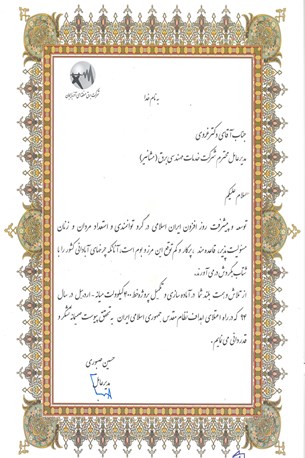 شرکت برق منطقه‌ای آذربایجان
به نام خدا
جناب آقای دکتر فرودی
مدیرعامل محترم شرکت خدمات مهندسی برق (مشانیر)
السلام علیکم
توسعه و پیشرفت روز افزون ایران اسلامی در گرو توانمندی و استعداد مردان و زنان
مسئولیت پذیر، قاعده مند، پرکار و کم توقع این مرز و بوم است، آنانکه چرخهای آبادانی کشور را با
شتاب بگردش در می آورند.
از تلاش و همت بلند شما در آماده سازی و تکمیل پروژه خط ۴۰۰ کیلوولت میانه - اردبیل در سال
۹۴ که در راه اعتلای اهداف نظام مقدس جمهوری اسلامی ایران به تحقق پیوست صمیمانه تشکر و
قدردانی می نمایم.
حسین صبوری
مدیرعامل